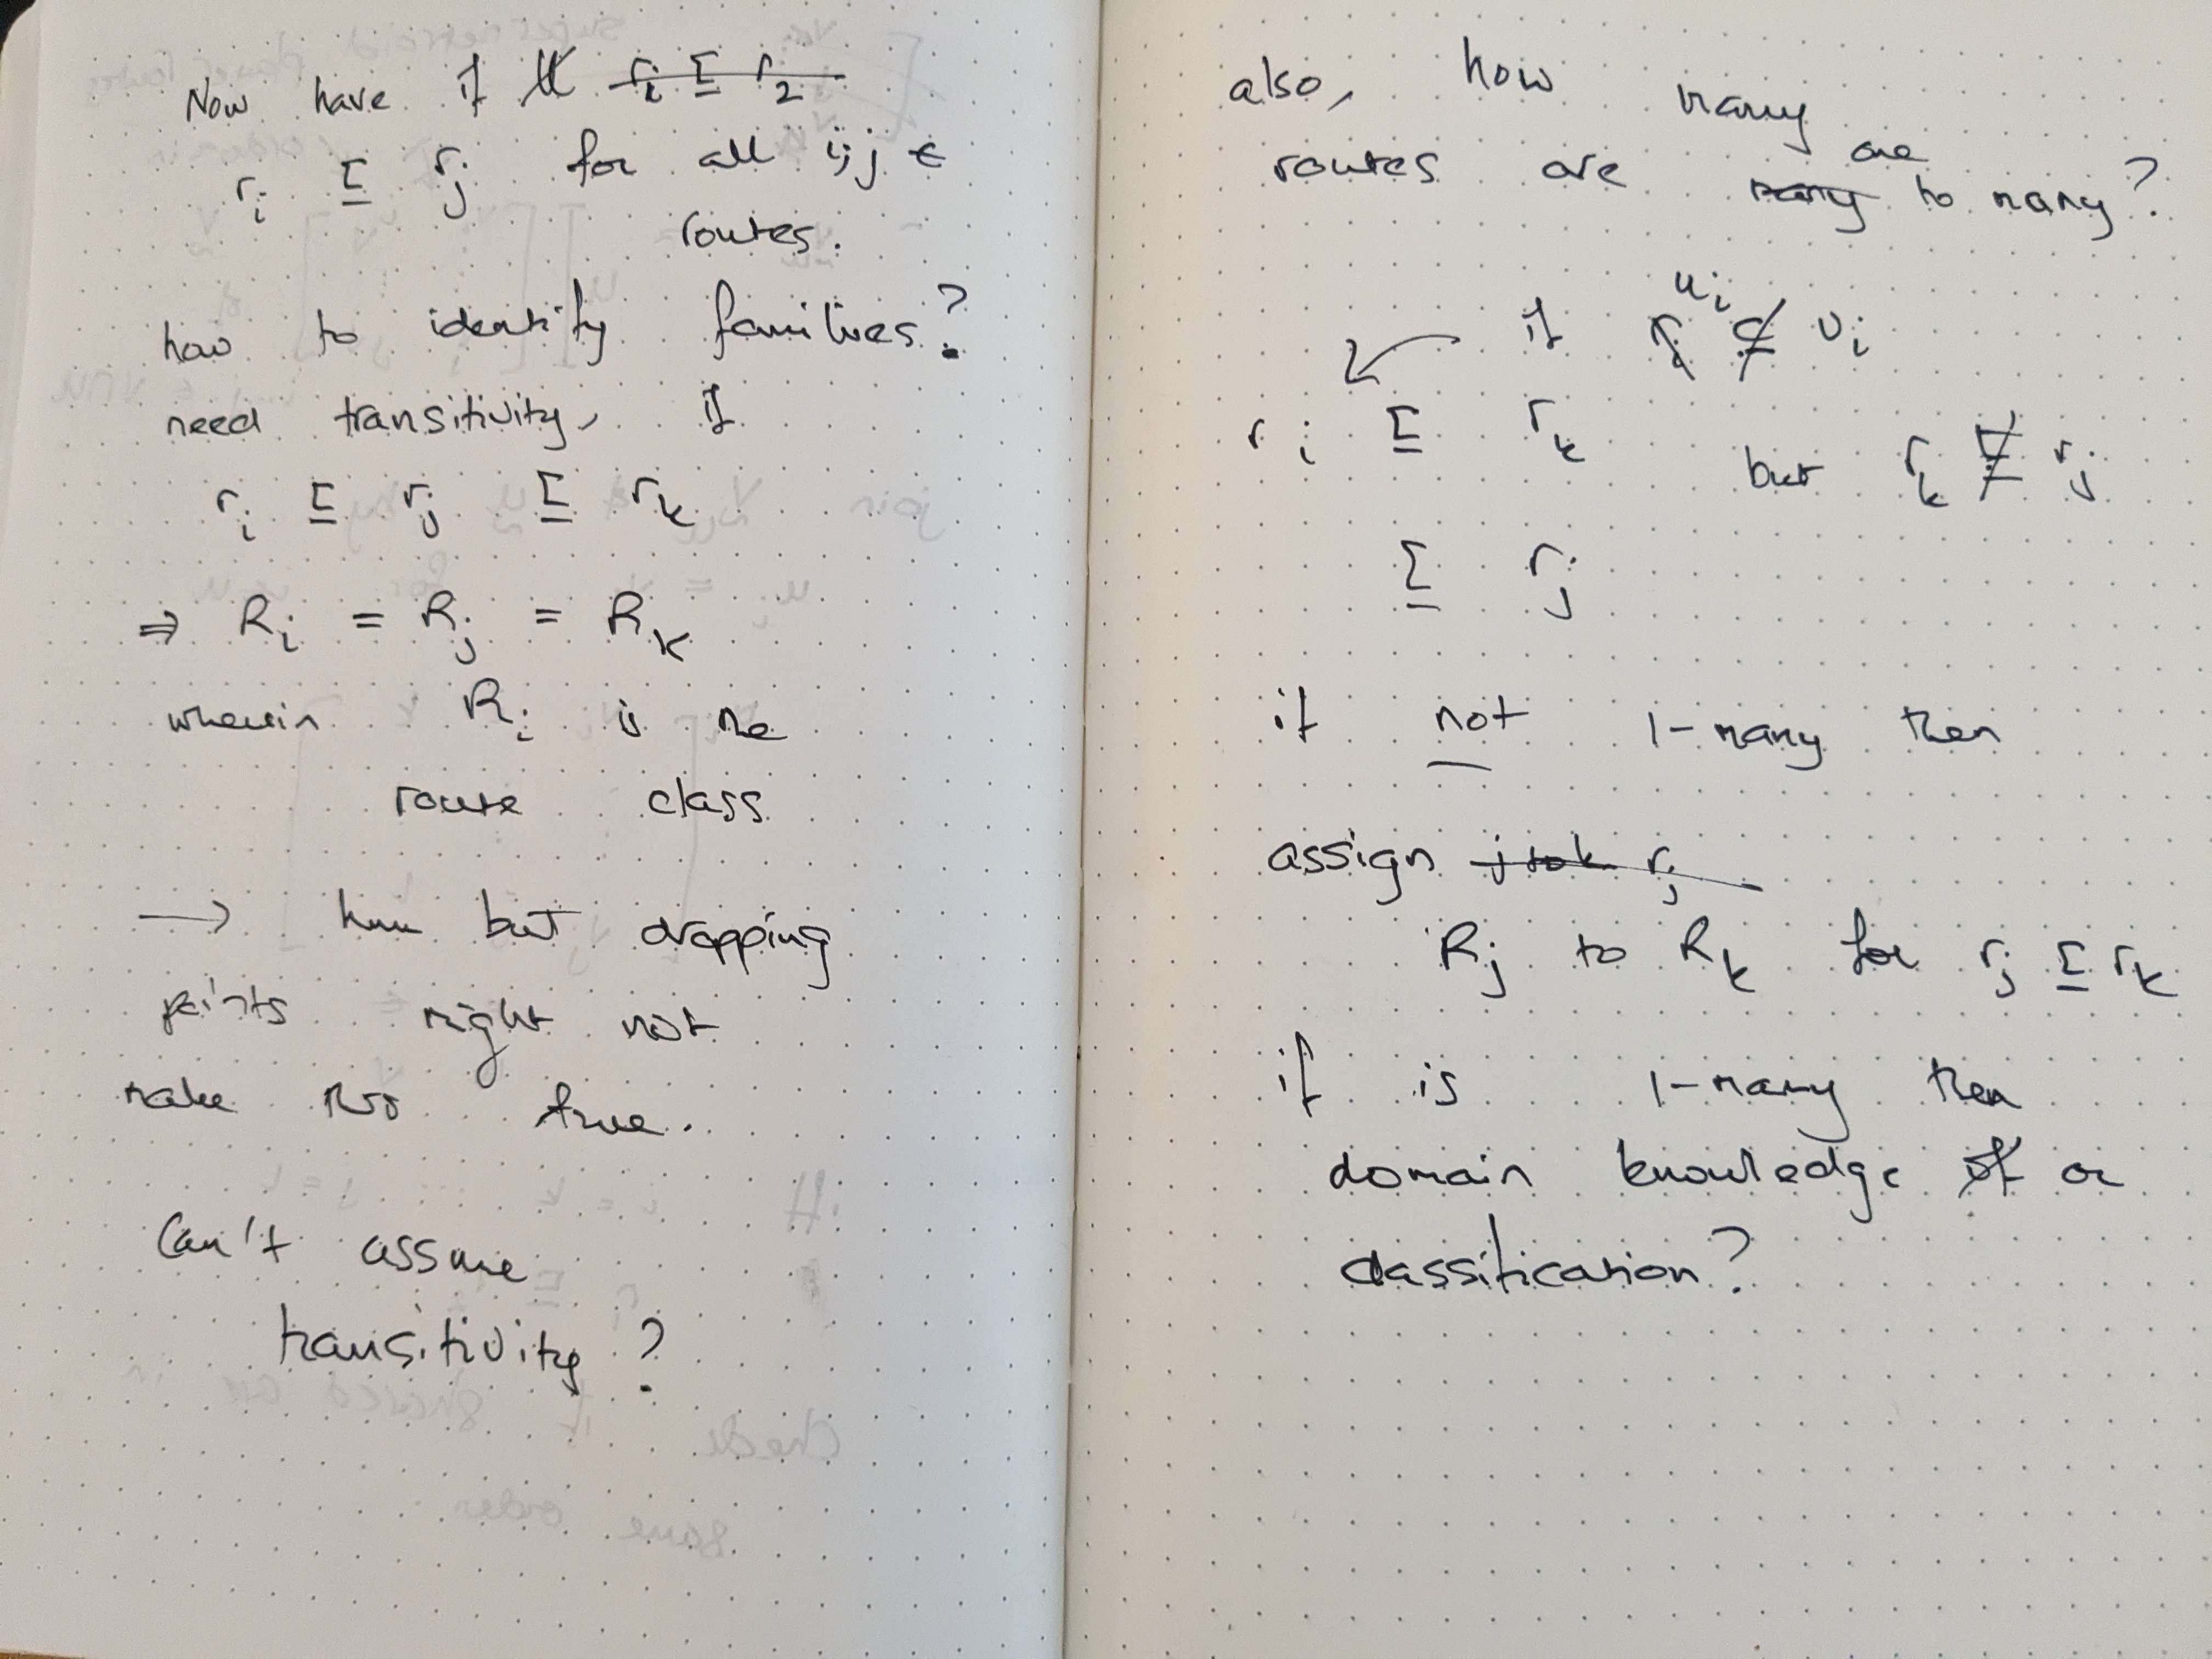 Now have if r_i ⊑ r_2
r_i ⊑ r_j for all i,j ∈
routes.
how to identify families?
need transitivity, if
r_i ⊑ r_j ⊑ r_k
⇒ R_i = R_j = R_k
wherein R_i is the
route class
→ hmm but dropping
points might not
make this true.
Can't assume
transitivity?
also, how many
routes are many one to many?
if u_i ⊄ v_i
r_i ⊑ r_k but r_k ⋢ r_j
⊑ r_j
if not 1-many then
assign j to k r_j
R_j to R_k for r_j ⊑ r_k
if is 1-many then
domain knowledge or
classification?